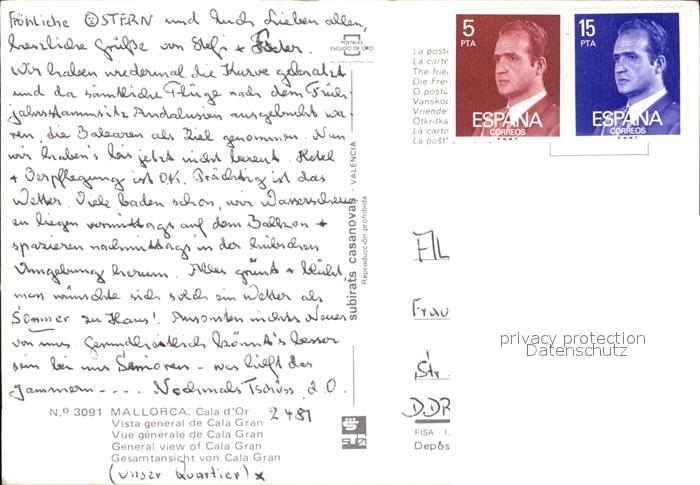 Fröhliche OSTERN und Euch Lieben allen,
herzliche Grüße von Stefi +
Wir haben wiedermal die Kurve gekratzt
und da sämtliche Flüge nach dem Früh-
jahrsstammsitz Andalusien ausgebucht wa-
ren, die Balearen als Ziel genommen. Nun
wir haben's bis jetzt nicht bereut. Hotel
+ Verpflegung ist O.K. Prächtig ist das
Wetter. Viele baden schon, wir Wasserscheuen
liegen vormittags auf dem Balkon +
spazieren nachmittags in der hübschen
Umgebung herum. Alles grünt + blüht,
man wünschte sich solch ein Wetter als
Sommer zu Haus! Ansonsten nichts Neues
von uns. Gesundheitlich könnt's besser
sein bei uns Senioren - was hilft das
Jammern - - - -. Nochmals Tschüss, d. O.
N.º 3091 MALLORCA. Cala d'Or 2 4 81
Vista general de Cala Gran
Vue générale de Cala Gran
General view of Cala Gran
Gesamtansicht von Cala Gran
(unser Quartier) x
POSTALES
ESCUDO DE ORO
subirats casanovas - VALENCIA
Reproducción prohibida
La post
La carte
The frie
Die Fre
O postu
Vansko
Vriende
Otkritka
La carto
La poŝt
5
PTA
ESPAÑA
CORREOS
F.N.M.T.
15
PTA
ESPAÑA
CORREOS
F.N.M.T.
AL
Frau
Str.
DDR
FISA - I.
Depós
privacy protection
Datenschutz